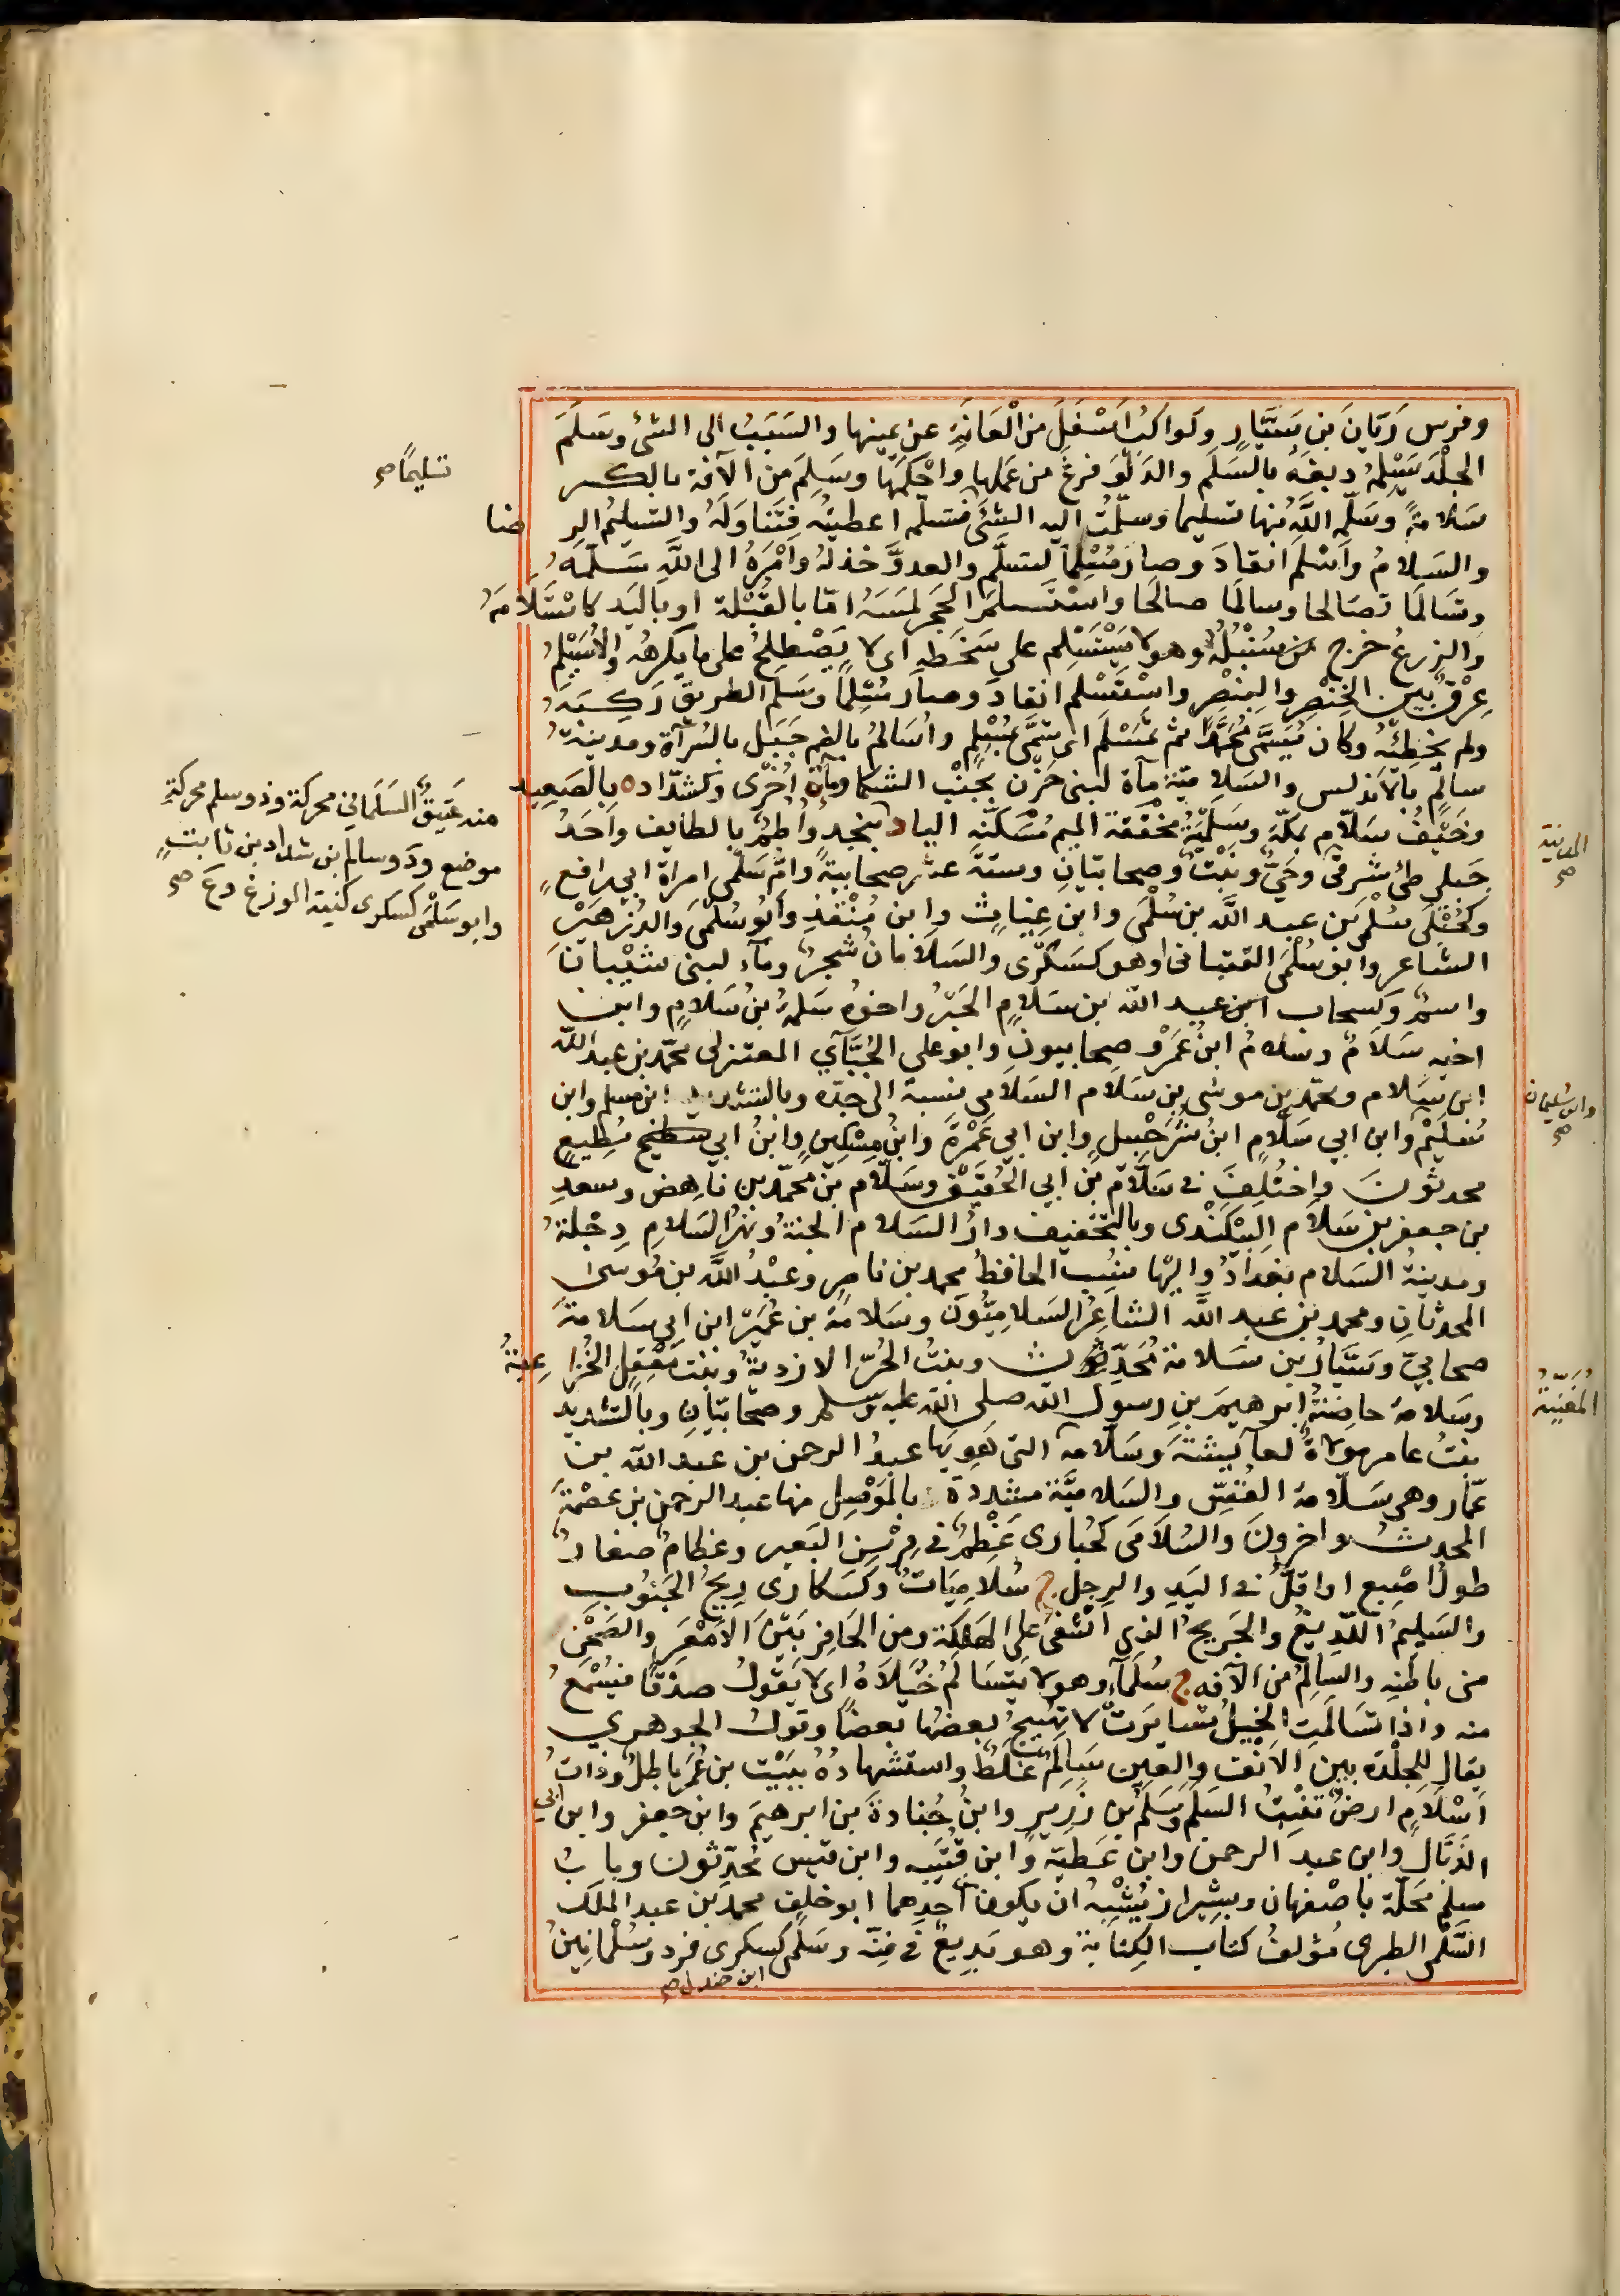 وفرس رَبّانَ بنِ سَيَّارٍ وكواكبُ اَسْفَلَ من الْعَانَةِ عن يمينها والسَبَبُ الى الشئ وسَلَمَ
الجِلْدَ يَسْلِمُهُ دبغهُ بالسَلَم والدَلْوَ فرغَ من عَملها واحْكَمَهَا وسَلِمَ من الآفة بالكسر
تسليمًا صح
سَلامةً وسَلّمه اللهُ منها تسليما وسلّمتُ اليه الشئَ فتسلّمه اعطيتُه فتَناوَلَهُ والتسليمُ الرِضا
والسَلامُ واَسْلَم انقادَ وصار مُسْلِماً كتسلَّم والعدوَّ خذلهُ واَمْرَهُ الى اللهِ سَلّمَهُ
وتسَالَمَا تصَالحا وسالَمَا صالَحَا واسْتَلَمَ الحَجَر لمَسَهُ امّا بالقُبْلة او باليَد كاسْتَلأَمَهُ
والزرعُ خرج سُنْبُلُهُ وهو لا يَسْتَلِم على سَخَطِهِ اى لا يَصْطلِحُ على ما يكرههُ والأُسَيْلِمُ
عِرْقٌ بين الخِنْصِرِ والبِنْصِرِ واسْتَسْلم انقادَ وصار مُسْلِمًا وسَلم الطريقَ رَكِبَهُ
ولم يخطِئْهُ وكان يُسَمّى مُحَمَّدًا ثم تَمَسْلَمَ اى تسمّى بمُسْلِمٍ واُسَالِمُ بالضم جَبَل بالسَرآة ومدينةُ
سالِمٍ بالاَندلس والسَلاميّة مآة لبنى حَزْن بجَنْب الثلما ومآة اُخْرَى وكشدّاده بالصَعِيد
وخَيْفُ سَلّامٍ بمكّة وسَلْمِيَةُ مخفّفة الميم مُسَكّنة الياء د بنجد واُطُمٌ بالطايف واَحَدُ
منه عَتيقٌ السَلَمانى محركة وذو سلم محركة
موضع ودَوسالم بن شداد بن ثابت
وابو سَلْمَى كسكرى كنية الوزغ صح
جَبلى طئ شرقىّ وحَىٌّ ونَبْتٌ وصحابيّان وستة عشر صحابيةً وامّ سَلْمى امراة ابى رافع
وكحُبْلَى سُلْمَى بن عبد الله بن سُلْمَى وابن غِياث وابن مُنْقِذٍ وابُو سُلْمَى والد زُهَيْر
الشاعر وابو سُلْمَى القتبانى او هو كسَكْرَى والسَلامان شجرٌ ومآء لبنى شَيْبانَ
واسمٌ وكسحاب ابن عبد الله بن سَلامٍ الحَبْرُ واخوهُ سَلمةُ بنُ سَلامٍ وابن
اخيه سَلامٌ وسَلامُ ابنُ عَمْرو صحابيون وابو على الجُبَّآى المعتزلى محمّد بن عبد الله
ابن سَلام ومحمّد بن موسَى بن سَلام السَلامى نسبة الى جدّه وبالتشديد ابن مسلم وابن
وابن سُليمان صح
سُلَيْم وابن ابى سَلام ابنُ شُرَحْبيل وابن ابى عَمْرَةَ وابن مِسْكينٍ وابنُ ابى مُطِيعٍ
محدثونَ واختُلِفَ فى سَلّام بن ابى الحُقَيْق وسَلّام بن محمّد بن ناهض وسعدِ
بن جعفر بن سَلام البيْكَنْدى وبالتخفيف دارُ السَلام الجنةُ ونهرُ السَلامِ دِجْلةُ
ومدينةُ السَلام بغدادُ واليها نُسِبَ الحافظُ محمد بن ناصر وعبْدُ الله بن مُوسى
المحدثان ومحمد بن عبد الله الشاعرُ السَلامِيُّونَ وسَلامةُ بن عُمَيْر ابن ابى سَلامةَ
صحابىّ وسَيّارُ بن سَلامة مُحَدِّثُون وبنتُ الحُرّ الازديّةُ وبنت مَعْقِل الخُزاعِيّةُ
وسَلامةُ حاضِنةُ ابرهيمَ بنِ رسولِ الله صلى الله عليه وسلم وصحابيّان وبالتشديد
المُغَنِّيَةُ
بنتُ عامر مولاةٌ لعآيشة وسَلّامة التى هَوِيَها عبدُ الرحمن بن عبد الله بن
عمّار وهى سَلّامةُ القَسّ والسَلاميّة مشددة ة بالمَوْصِل منها عبد الرحمن بن عصْمةَ
المحدثُ واخرونَ والسُلامَى كحُبارى عَظْمٌ فى فِرْسِنِ البَعير وعِظامٌ صغارٌ
طولَ اصْبع او اقلُّ فى اليَدِ والرِجلِ ج سُلامِيَاتٌ وكسَكارى رِيحُ الجَنُوبِ
والسَليمُ اللّدِيغُ والجَرِيحُ الذى اَشْفَى على الهَلكة ومن الحَافِر بَيْنَ الاَمْعَرِ والصَحْنِ
من باطنه والسالِمُ من الآفه ج سُلَمَآء وهو لا يتَسَالَمُ خَيْلاهُ اى لا يَقُولُ صدْقًا فيُسْمَعُ
منه واذا تسَالَمَتِ الخَيلُ تسَايَرَتْ لا تَهيجُ بعضُها بعضًا وقولُ الجوهرى
يقال للجلْدة بين الأَنْف والعين سَالِمٌ غَلَطٌ واستشهادُهُ ببَيْت بن عُمَر باطلٌ وذاتُ
اَسْلَامٍ ارضٌ تُنْبِتُ السَلَمَ وسَلْمُ بن زَرِيرٍ وابنُ جُنادةَ بن ابرهيمَ وابن جعفر وابن ابى
الذَيّالِ وابن عبد الرحمن وابن عَطيّة وابن قُتَيْبه وابن قيس مُحَدِّثون وبابُ
سلم محَلّة باصْفهان وبشيراز يُشْبِهُ ان يكون احدهما ابو خلف محمد بن عبد الملك
السَّلْمى الطبرى مُؤلفُ كتاب الكِناية وهو بَدِيعٌ فى فنّه وسَلْمَى كسكرى فرد وسُلْمانينُ
ابن جندل صح